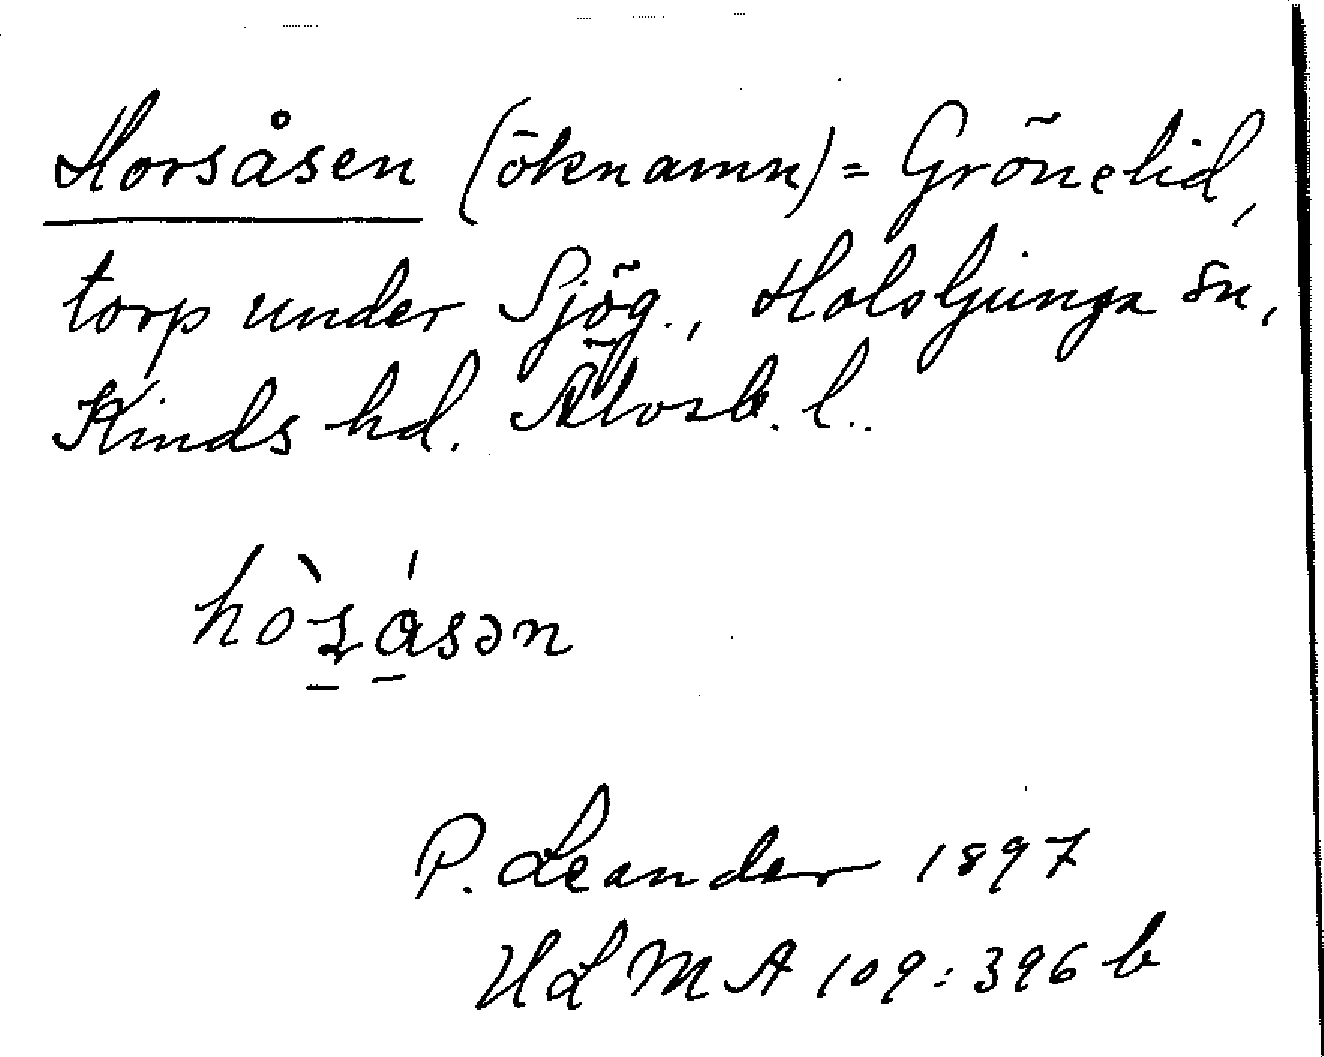 Horsåsen (öknamn) = Grönelid,
torp under Sjög., Holsljunga sn,
Kinds hd. Älvsb. l..
P. Leander 1897
ULMA 109:396 b